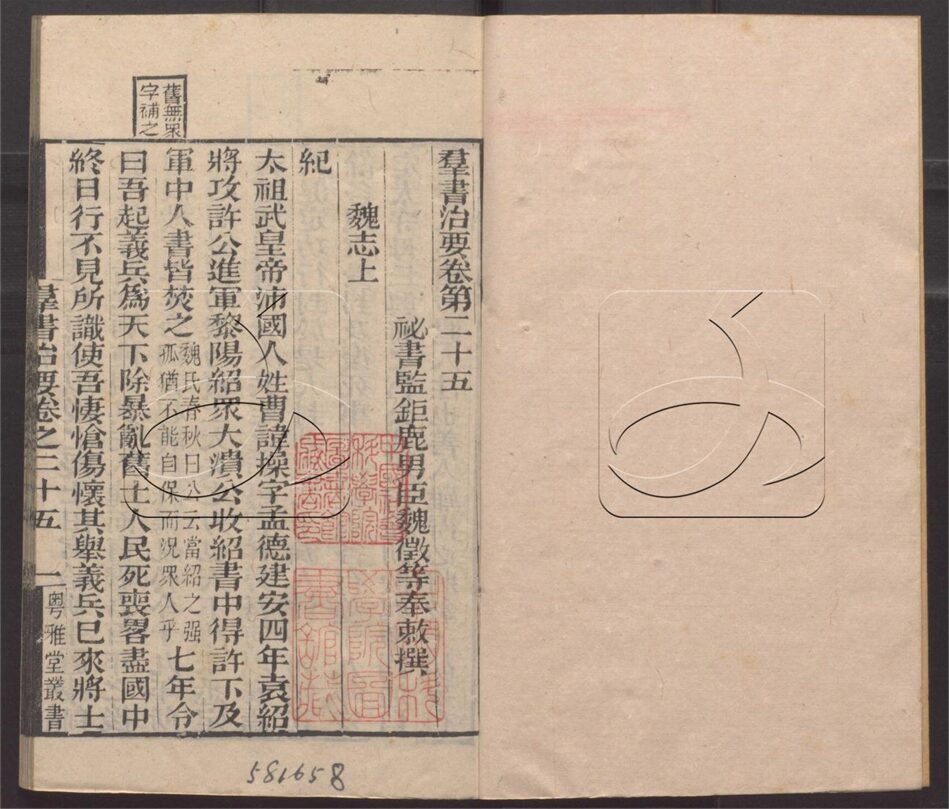 羣書治要卷第二十五
祕書監鉅鹿男臣魏徵等奉敕撰
魏志上
紀
太祖武皇帝沛國人姓曹諱操字孟德建安四年袁紹
將攻許公進軍黎陽紹眾大潰公收紹書中得許下及
軍中人書皆焚之魏氏春秋曰公云當紹之强孤猶不能自保而況眾人乎七年令
曰吾起義兵爲天下除暴亂舊土人民死喪畧盡國中
終日行不見所識使吾悽愴傷懷其舉義兵已來將士
羣書治要卷之二十五 一 粤雅堂叢書
舊無眾
字補之
581958